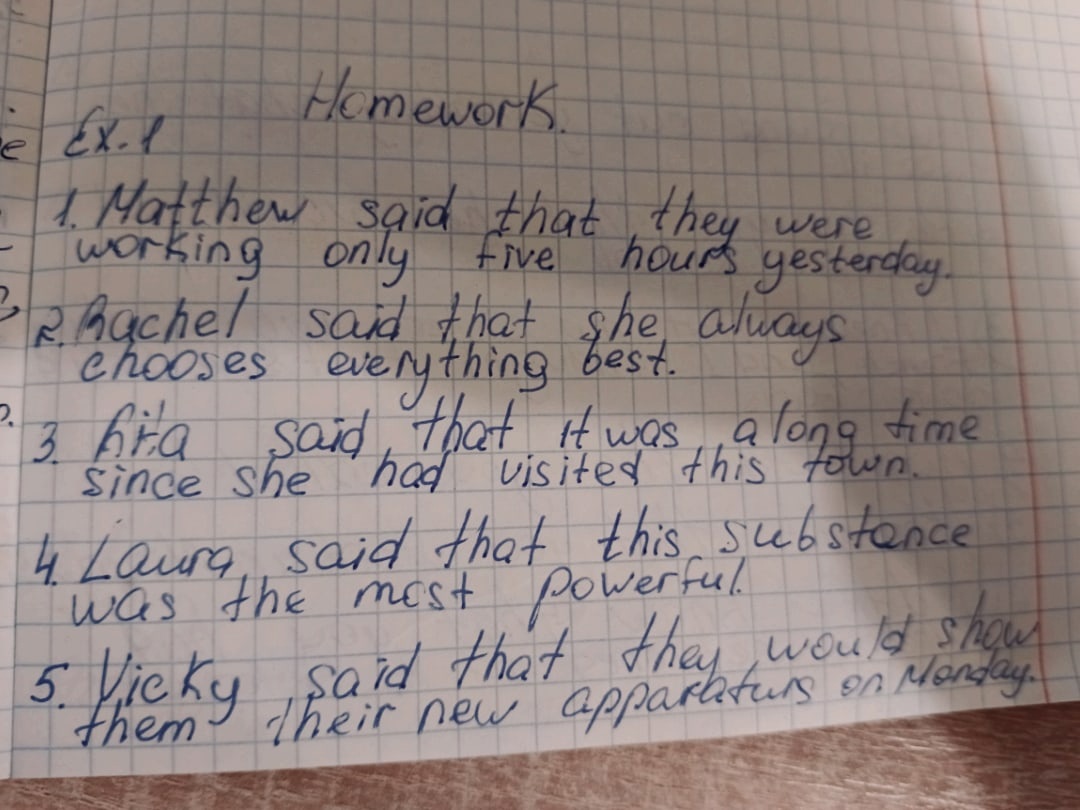 Homework.
Ex. 1
1. Matthew said that they were
working only five hours yesterday.
2. Rachel said that she always
chooses everything best.
3. Rita said that it was a long time
since she had visited this town.
4. Laura said that this substance
was the most powerful.
5. Vicky said that they would show
them their new apparaturs on Monday.